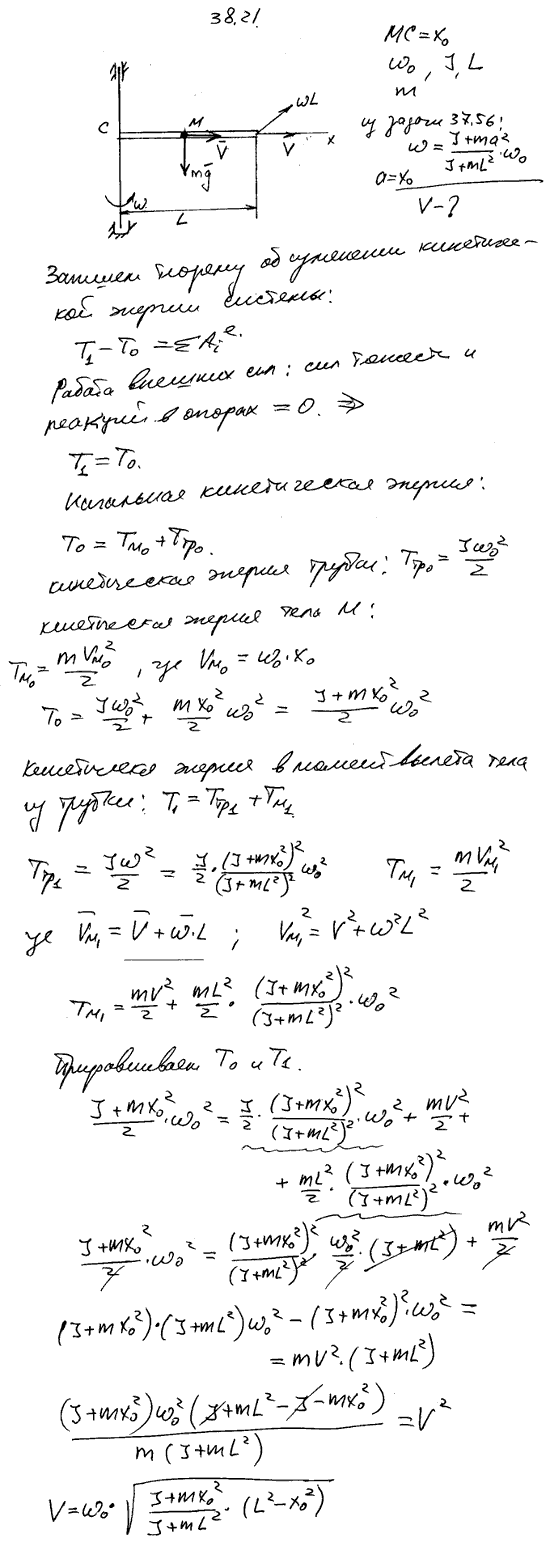 38.21.
MC = x₀
ω₀, J, L
m
из задачи 37.56:
ω = (J + ma²)/(J + mL²) · ω₀
a = x₀
V - ?
C M V̄ V x
ωL
mḡ
ω
L
Запишем теорему об изменении кинетичес-
кой энергии системы:
T₁ - T₀ = ΣAᵢᵉ.
Работа внешних сил: сил тяжести и
реакций в опорах = 0. ⇒
T₁ = T₀.
Начальная кинетическая энергия:
T₀ = Tм₀ + Tтр₀.
кинетическая энергия трубки: Tтр₀ = Jω₀²/2
кинетическая энергия тела M:
Tм₀ = mVм₀²/2, где Vм₀ = ω₀ · x₀
T₀ = Jω₀²/2 + mx₀²/2 ω₀² = (J + mx₀²)/2 ω₀²
кинетическая энергия в момент вылета тела
из трубки: T₁ = Tтр₁ + Tм₁
Tтр₁ = Jω²/2 = J/2 · (J + mx₀²)²/(J + mL²)² ω₀² Tм₁ = mVм₁²/2
где V̄м₁ = V̄ + ω̄·L ; Vм₁² = V² + ω²L²
Tм₁ = mV²/2 + mL²/2 · (J + mx₀²)²/(J + mL²)² · ω₀²
Приравниваем T₀ и T₁.
(J + mx₀²)/2 · ω₀² = J/2 · (J + mx₀²)²/(J + mL²)² · ω₀² + mV²/2 +
+ mL²/2 · (J + mx₀²)²/(J + mL²)² · ω₀²
(J + mx₀²)/2 · ω₀² = (J + mx₀²)²/(J + mL²)² · ω₀²/2 · (J + mL²) + mV²/2
(J + mx₀²)·(J + mL²)ω₀² - (J + mx₀²)²·ω₀² =
= mV²·(J + mL²)
(J + mx₀²)ω₀²(J + mL² - J - mx₀²)/(m(J + mL²)) = V²
V = ω₀ · √((J + mx₀²)/(J + mL²) · (L² - x₀²))